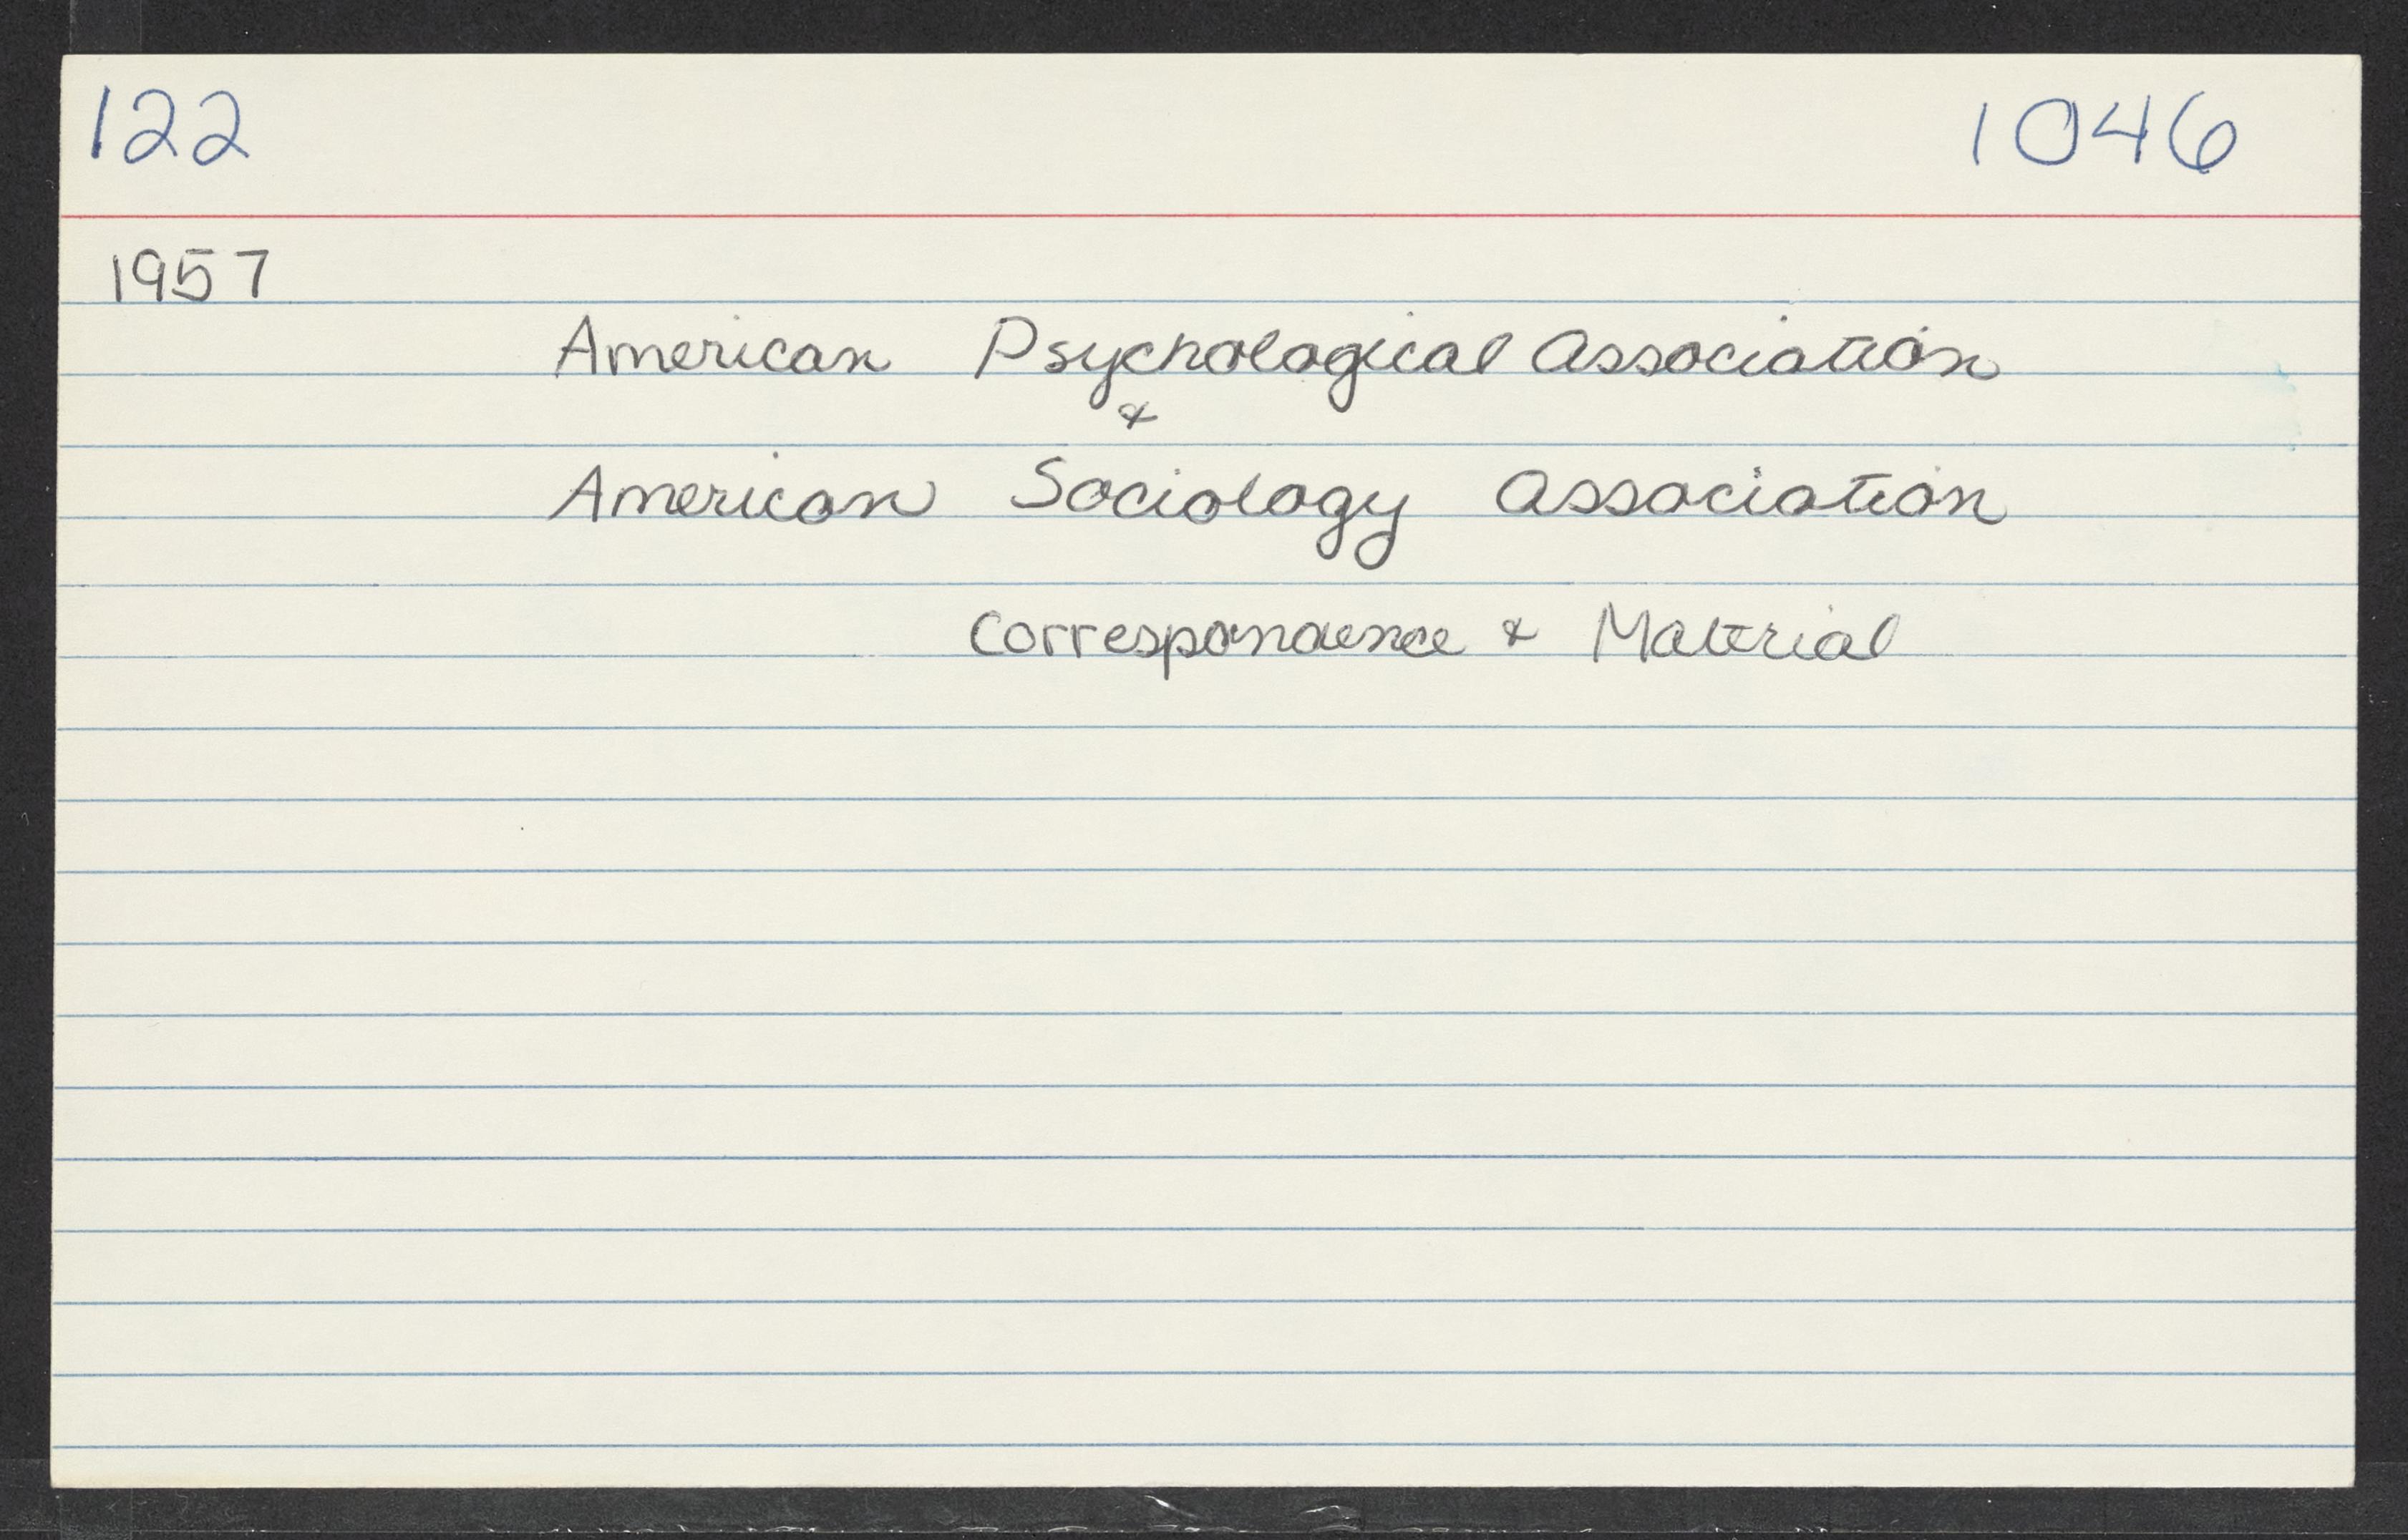 122 1046
1957
American Psychological Association
&
American Sociology Association
Correspondence & Material